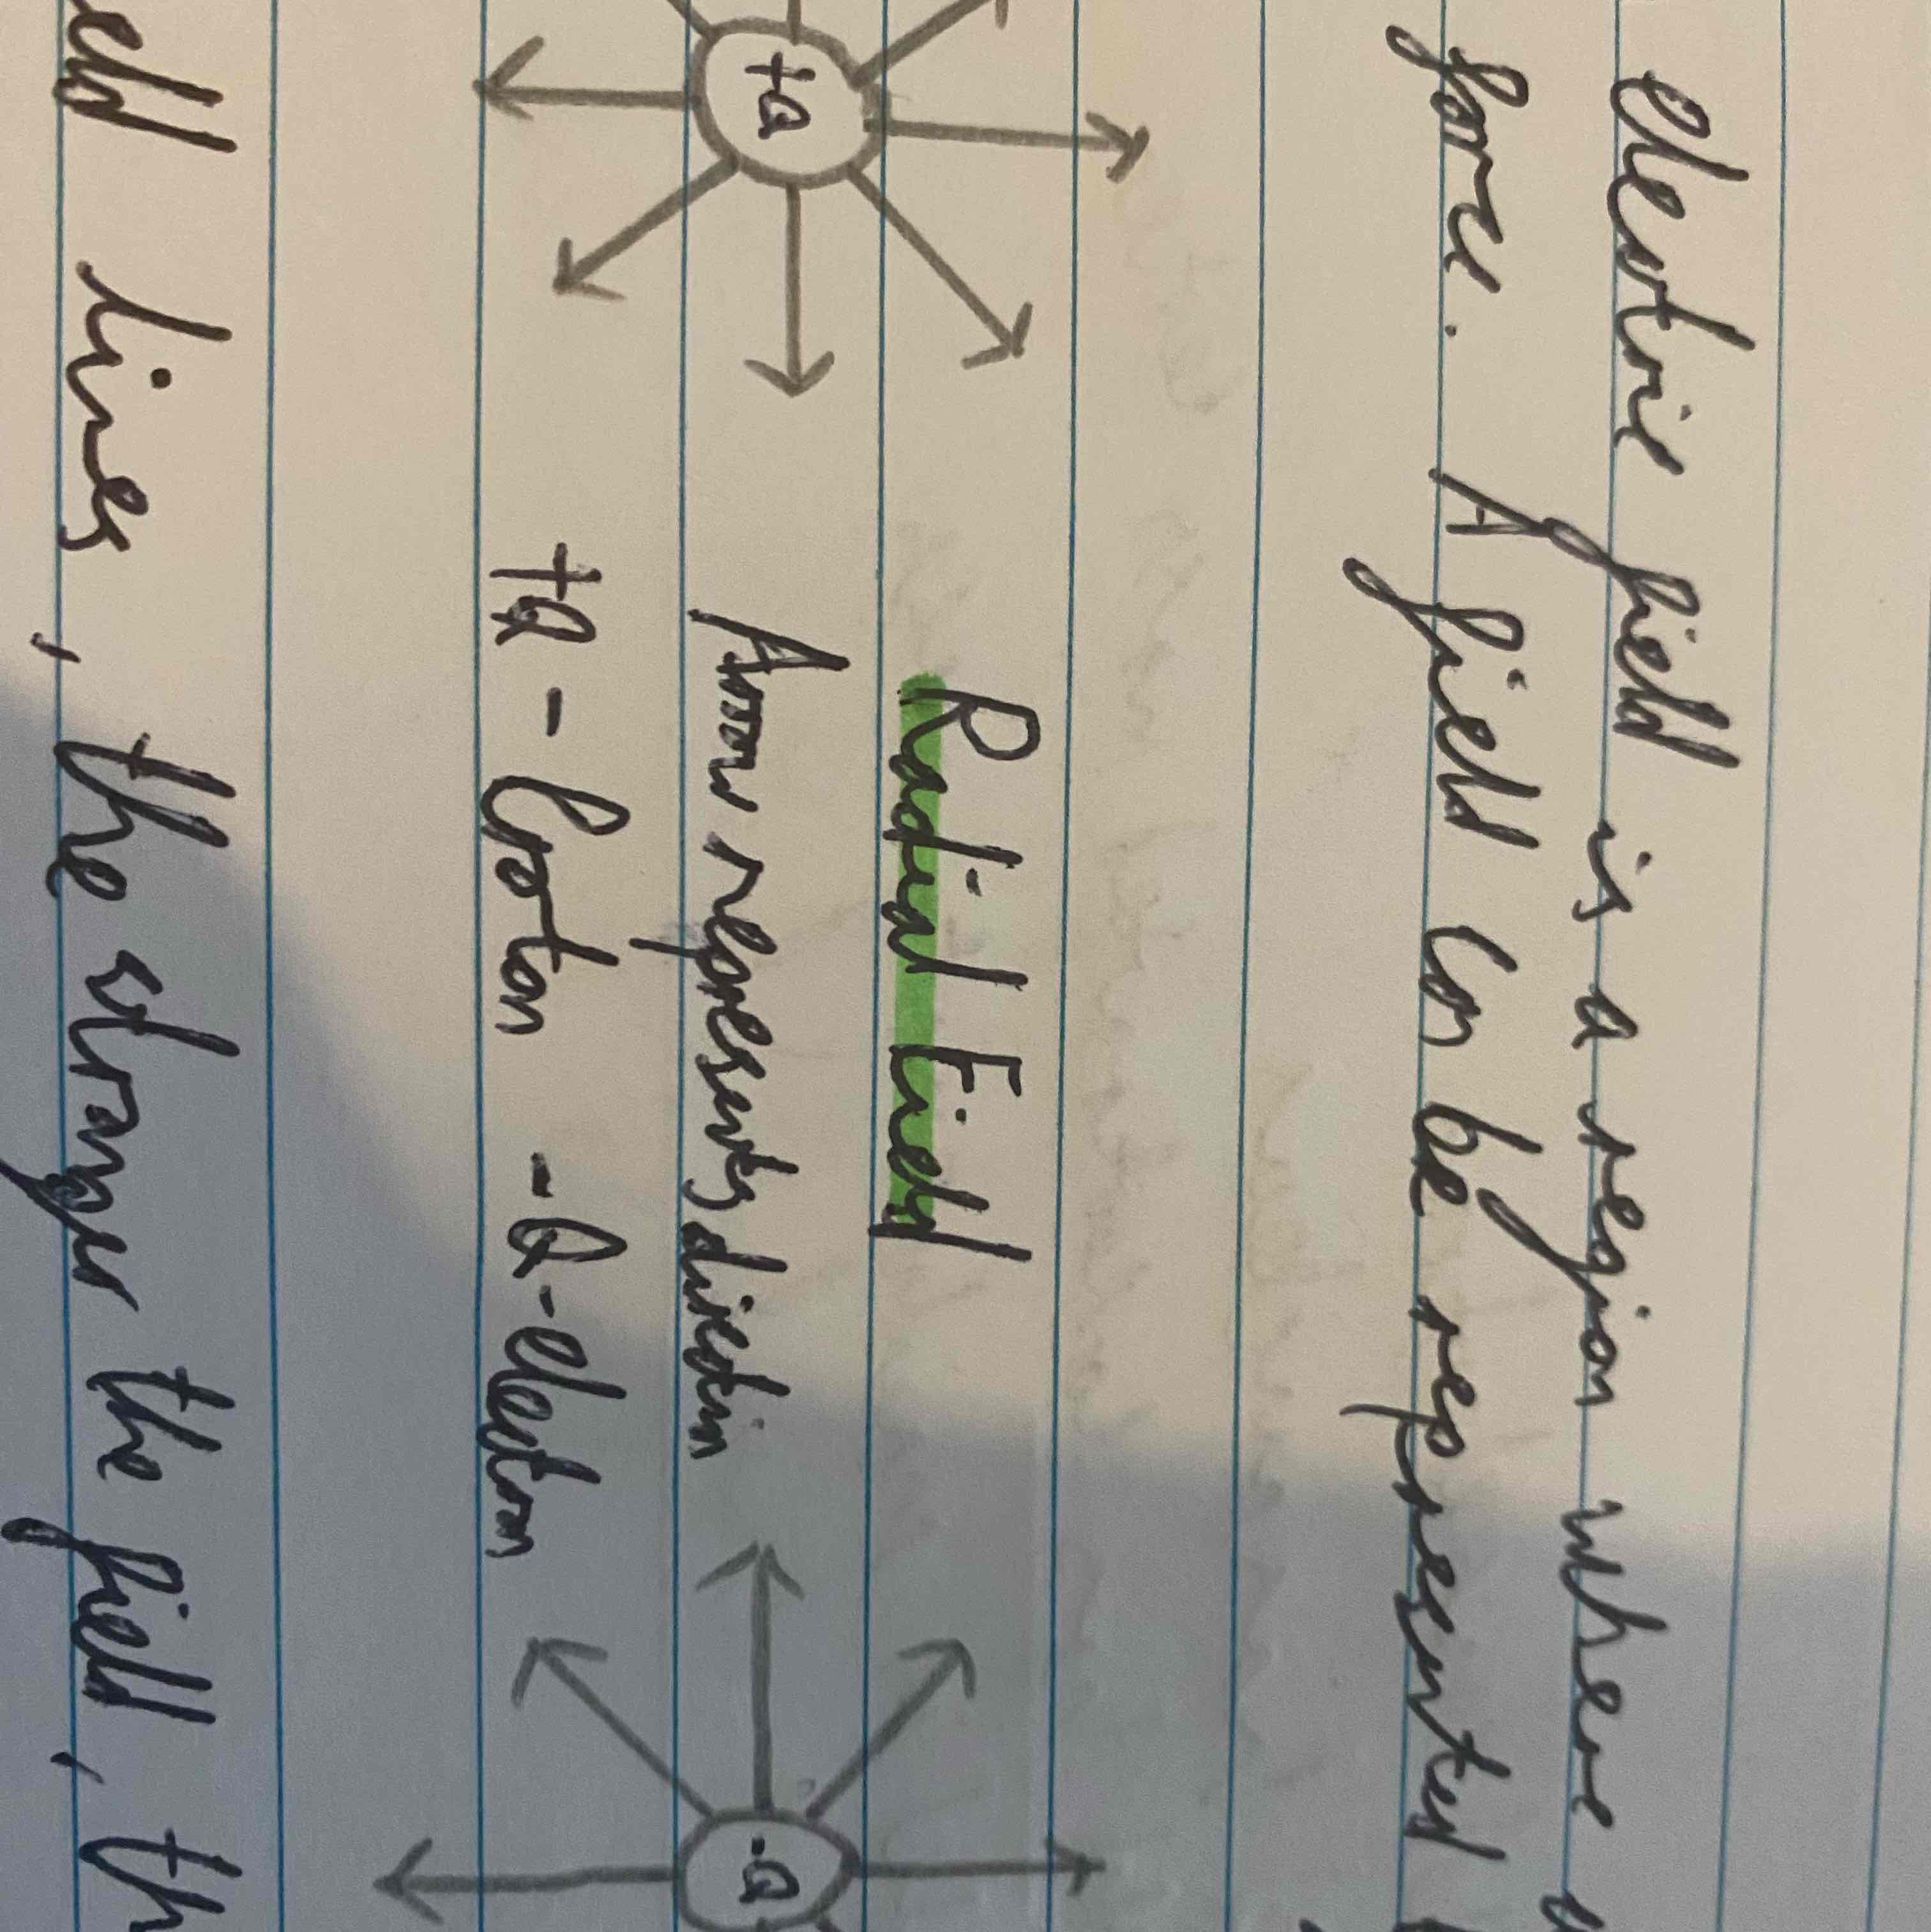 Electric field is a region where a
force. A field can be represented
+Q
Radial Field
Arrow represents direction
+Q - Proton -Q - electron
-Q
eld lines, the stronger the field, th